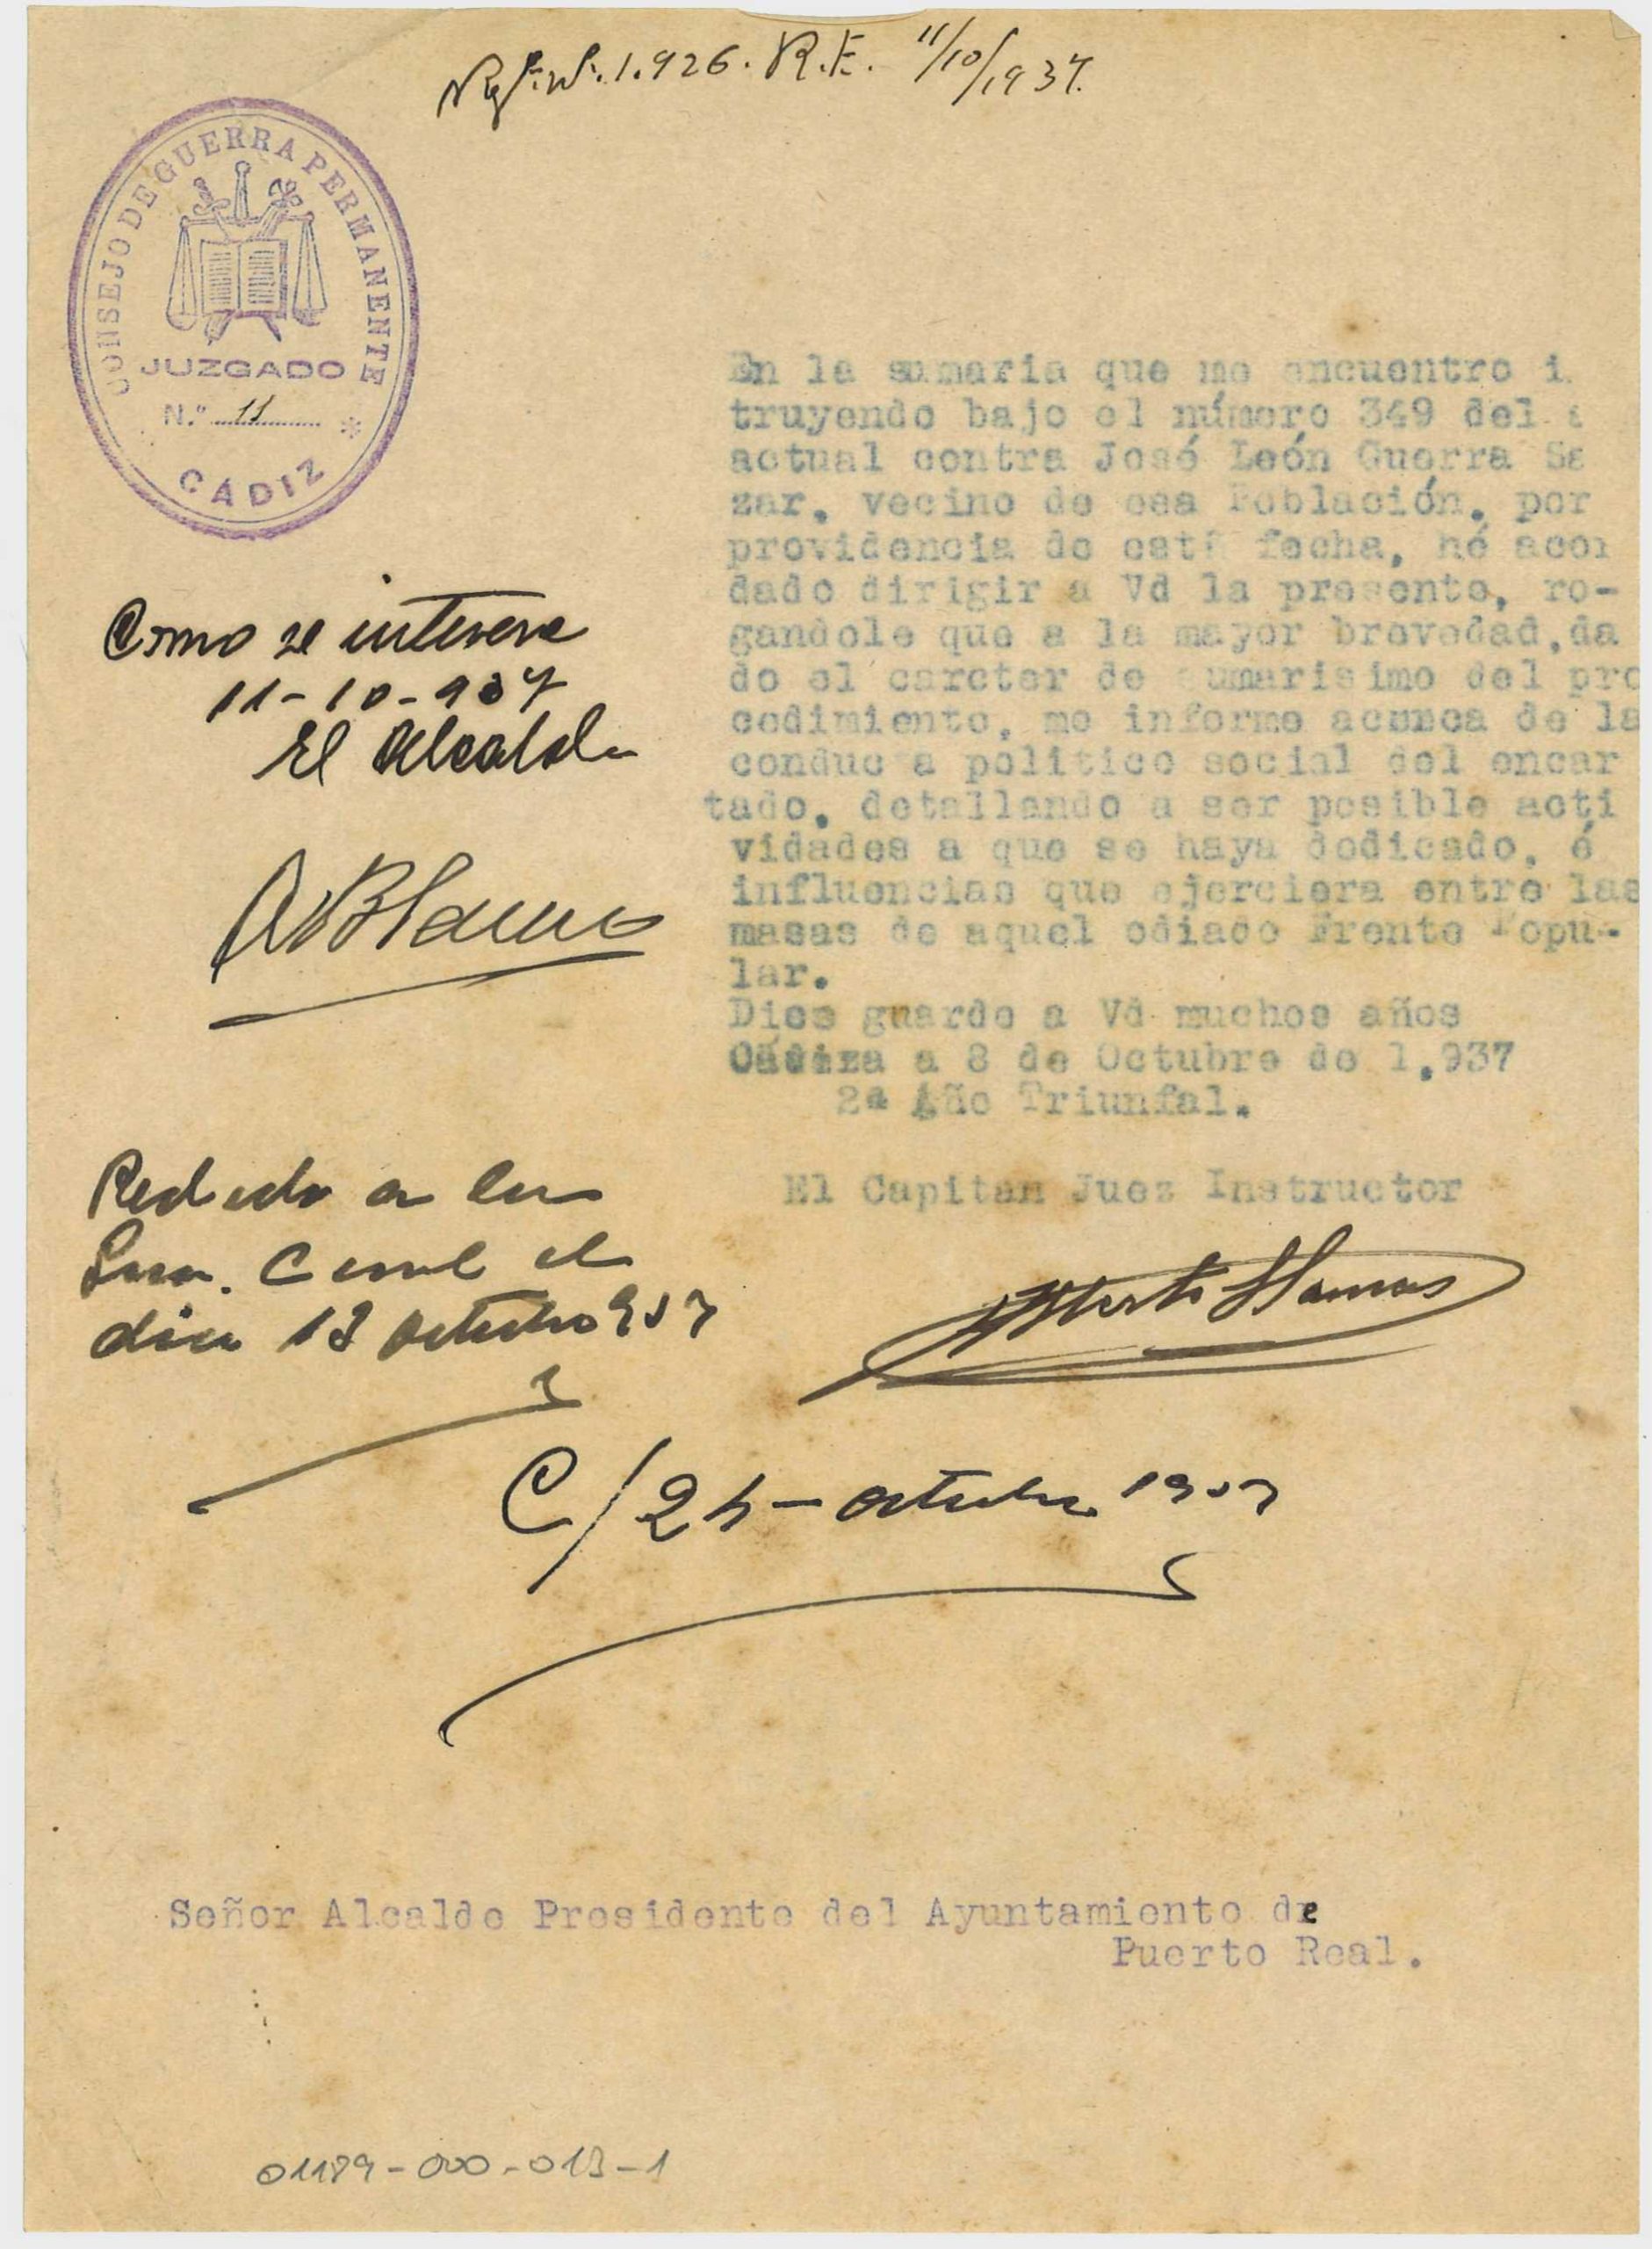 1.926. R.E. 11/10/1937.
CONSEJO DE GUERRA PERMANENTE
JUZGADO
N.º 11
CÁDIZ
En la sumaria que me encuentro i
truyendo bajo el número 349 del a
actual contra José León Guerra Sa
zar, vecino de esa Población, por
providencia de esta fecha, hé acor
dado dirigir a Vd la presente, ro-
gandole que a la mayor brevedad, da
do el carcter de sumarisimo del pro
cedimiento, me informe acerca de la
conduc a politico social del encar
tado, detallando a ser posible acti
vidades a que se haya dedicado, é
influencias que ejerciera entre las
masas de aquel odiado Frente Popu-
lar.
Dios guarde a Vd muchos años
Cádiz a 8 de Octubre de 1.937
2ª Año Triunfal.
El Capitan Juez Instructor
Como se interesa
11-10-937
El Alcalde
Pedido a la
el
dia 13 octubre 937
C/ 24 - octubre 1937
Señor Alcalde Presidente del Ayuntamiento de
Puerto Real.
01189-000-013-1